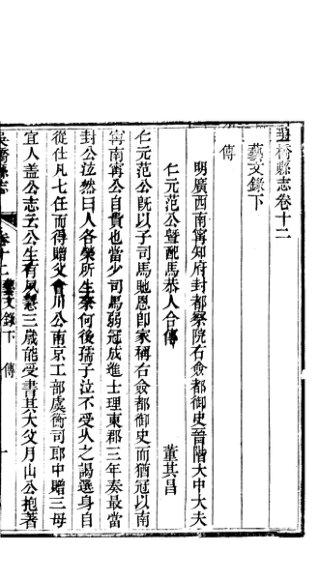 吳橋縣志卷十二
藝文錄下
傳
明廣西南寧知府封都察院右僉都御史晉階大中大夫
仁元范公曁配馬恭人合傳　董其昌
仁元范公旣以子司馬馳恩卽家稱右僉都御史而猶冠以南
寗南寗公自貴也當少司馬弱冠成進士理東郡三年奏最當
封公泫然曰人各榮所生奈何後孺子泣不受久之謁選身自
從仕凡七任而得贈父會川公南京工部虞衡司郎中贈三母
宜人蓋公志云公生有夙慧三歲能受書其大父月山公抱著
吳橋縣志　卷十二　藝文錄下　傳　一